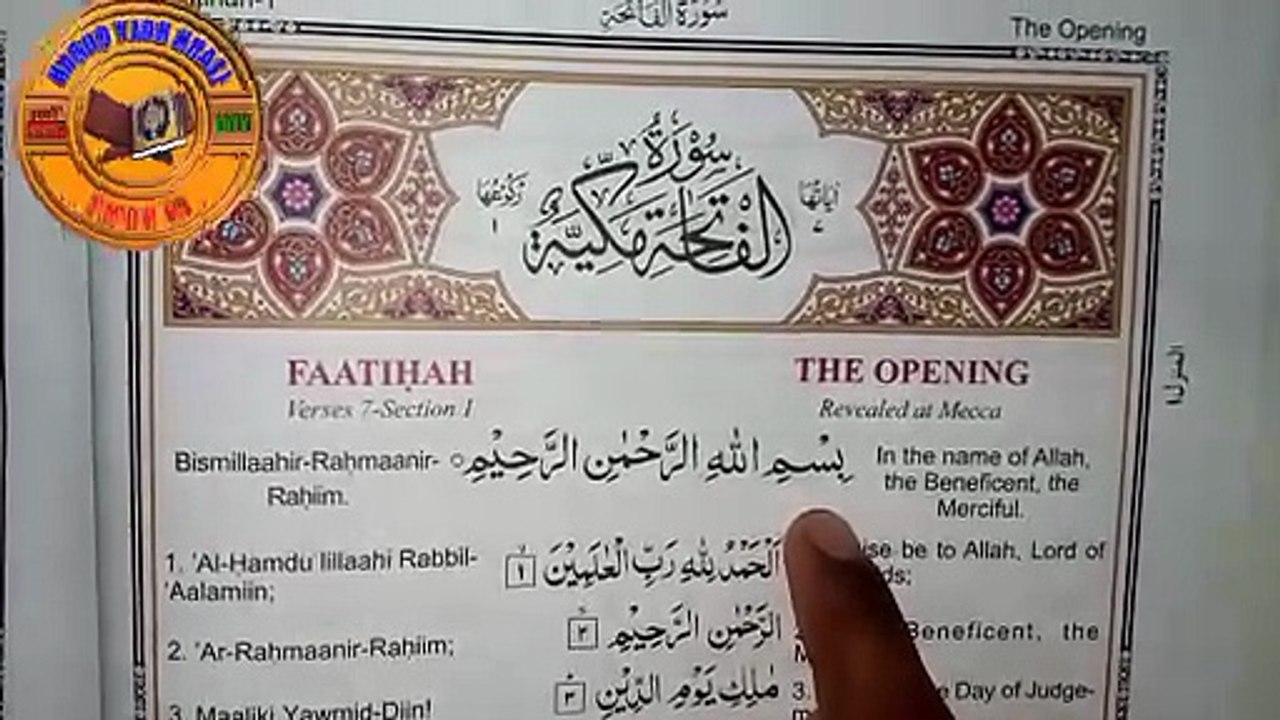 سُوْرَةُ الْفَاتِحَةِ
The Opening
سُوْرَةُ
اٰيَاتُهَا ٧
الْفَاتِحَةِ مَكِّيَّةٌ
رُكُوْعُهَا ١
FAATIḤAH
THE OPENING
Verses 7-Section 1
Revealed at Mecca
Bismillaahir-Raḥmaanir-
Raḥiim.
بِسْمِ اللهِ الرَّحْمٰنِ الرَّحِيْمِ ○
In the name of Allah,
the Beneficent, the
Merciful.
1. 'Al-Hamdu lillaahi Rabbil-
'Aalamiin;
اَلْحَمْدُ لِلّٰهِ رَبِّ الْعٰلَمِيْنَ ١
be to Allah, Lord of
2. 'Ar-Raḥmaanir-Raḥiim;
الرَّحْمٰنِ الرَّحِيْمِ ٢
Beneficent, the
3. Maaliki Yawmid-Diin!
مٰلِكِ يَوْمِ الدِّيْنِ ٣
3.
Day of Judge-